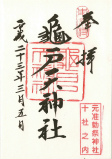 奉拝
亀戸天神社
平成二十三年三月五日
元准勅祭神社
十社之内